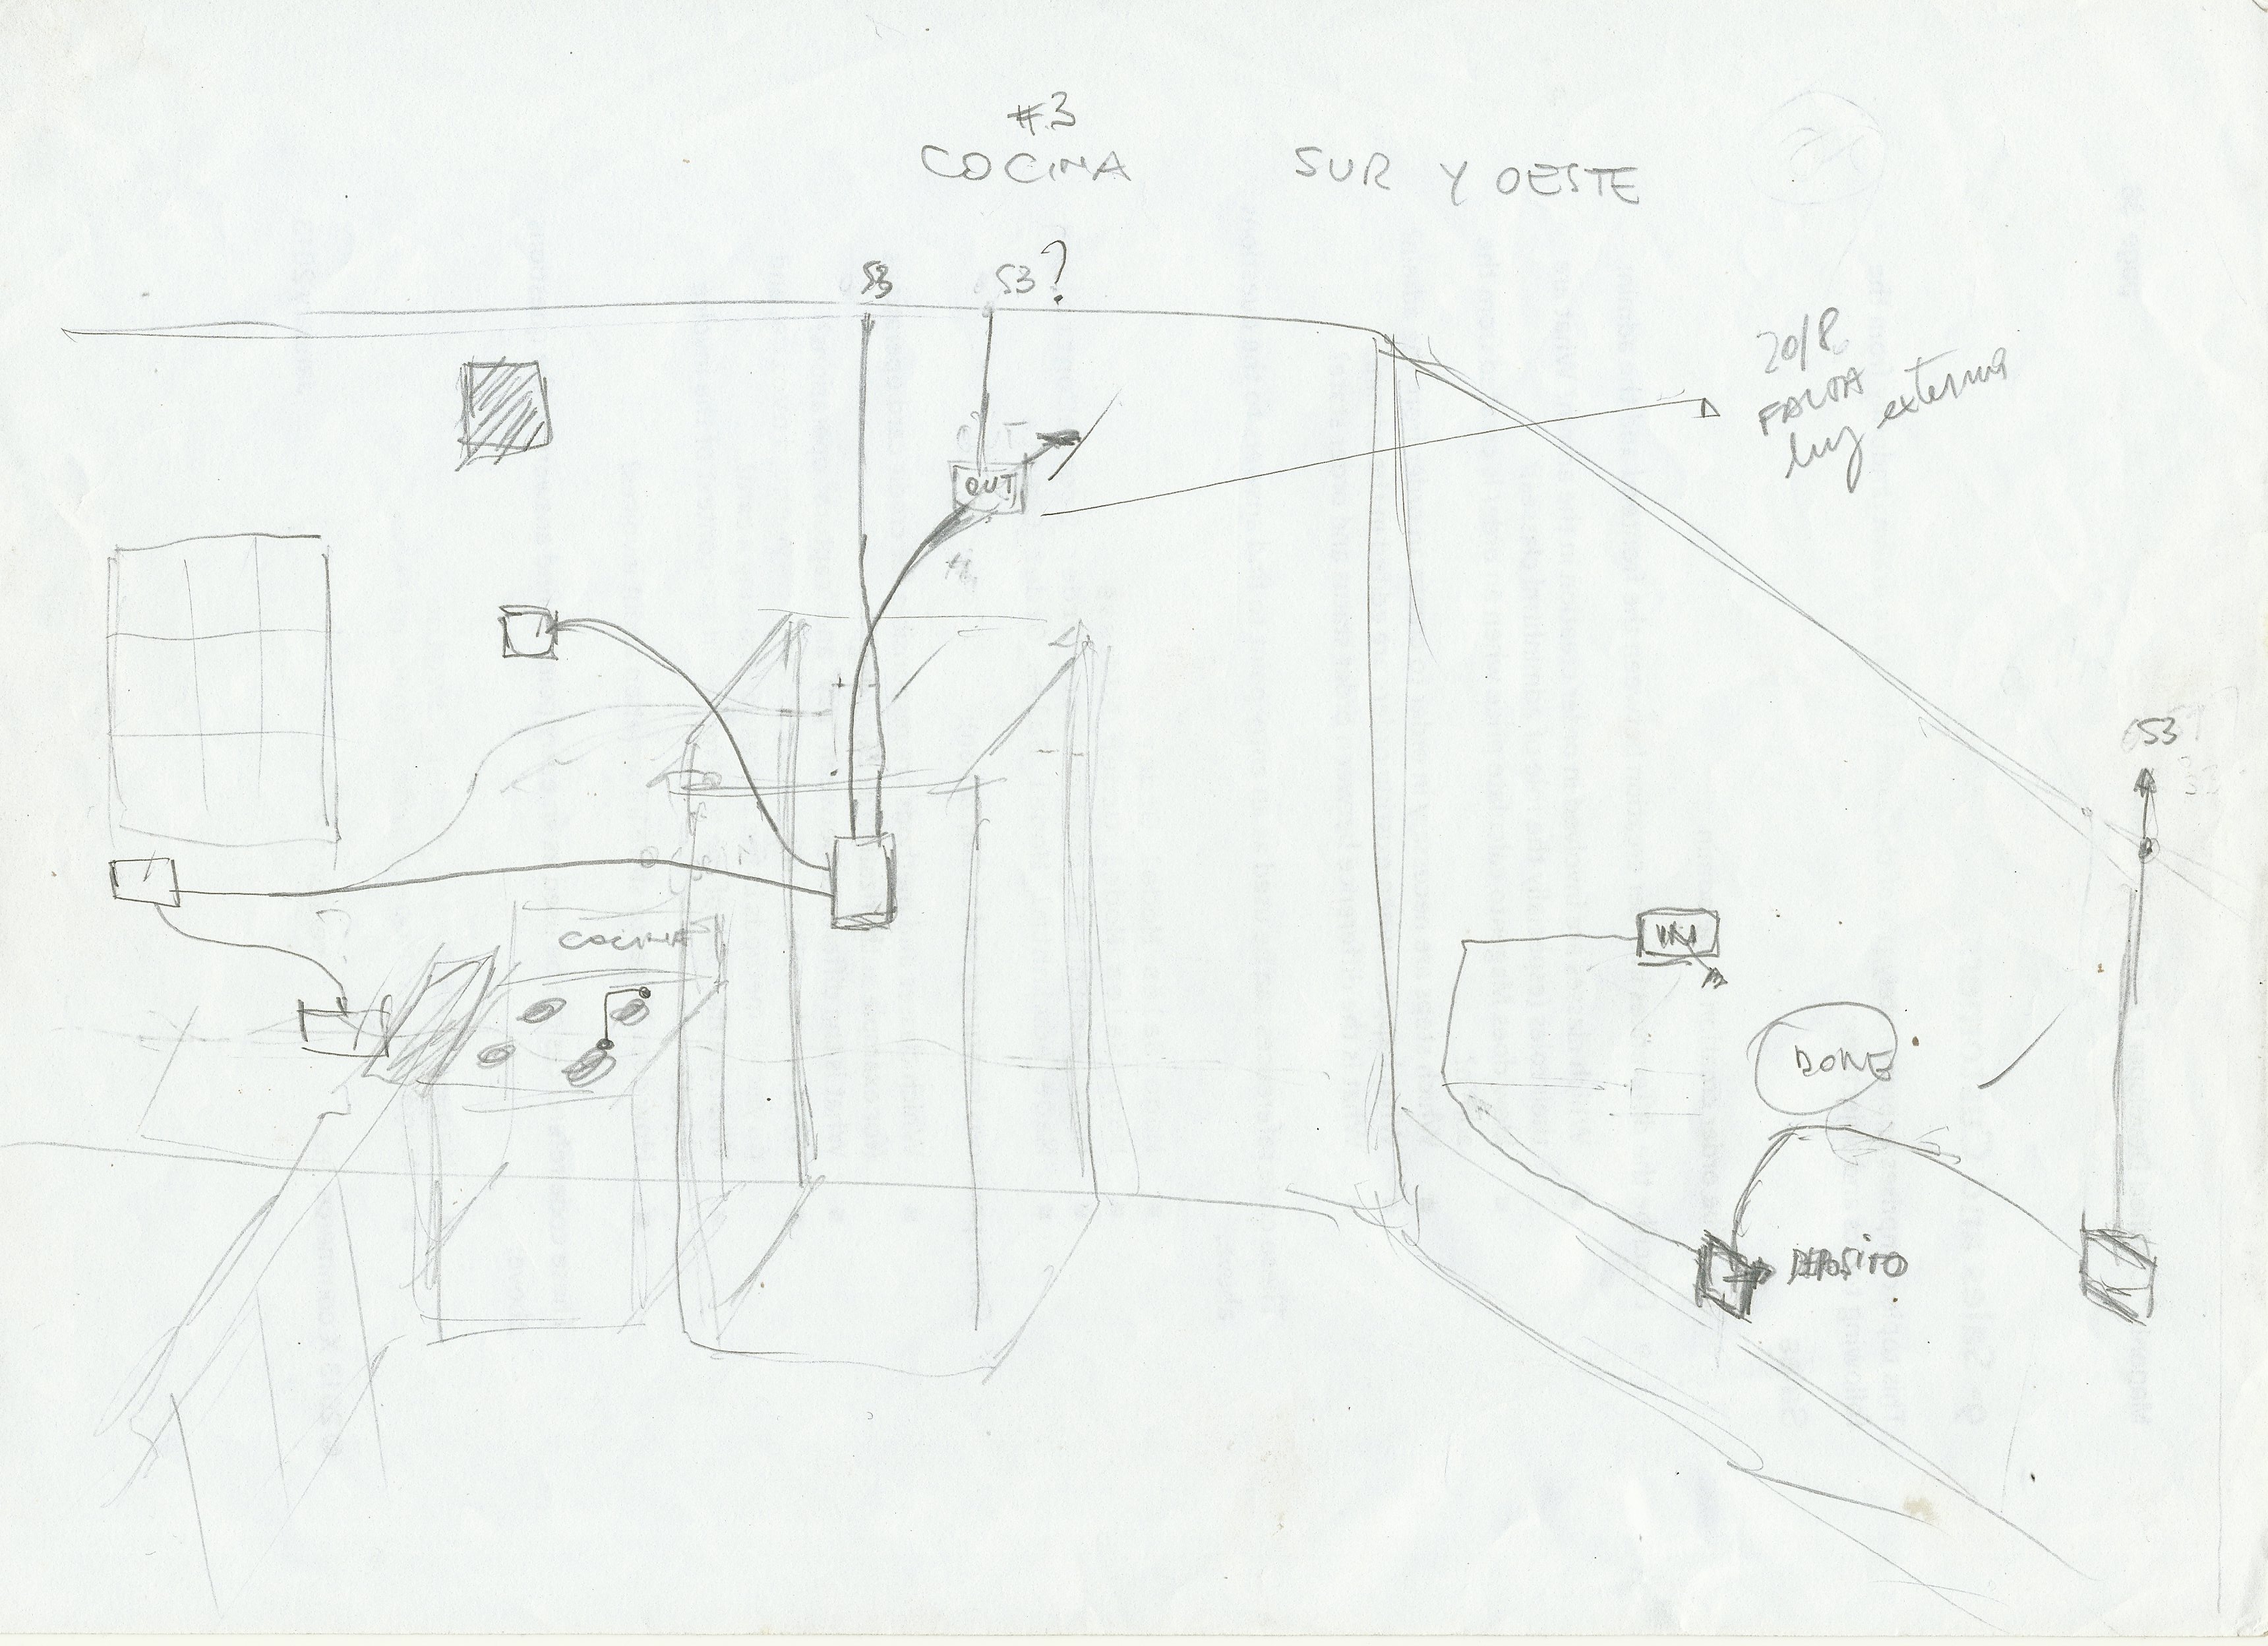 #3
COCINA SUR Y OESTE
S3 S3?
20/8
FALTA
luz externa
OUT
S3
COCINA
DONE
DEPOSITO